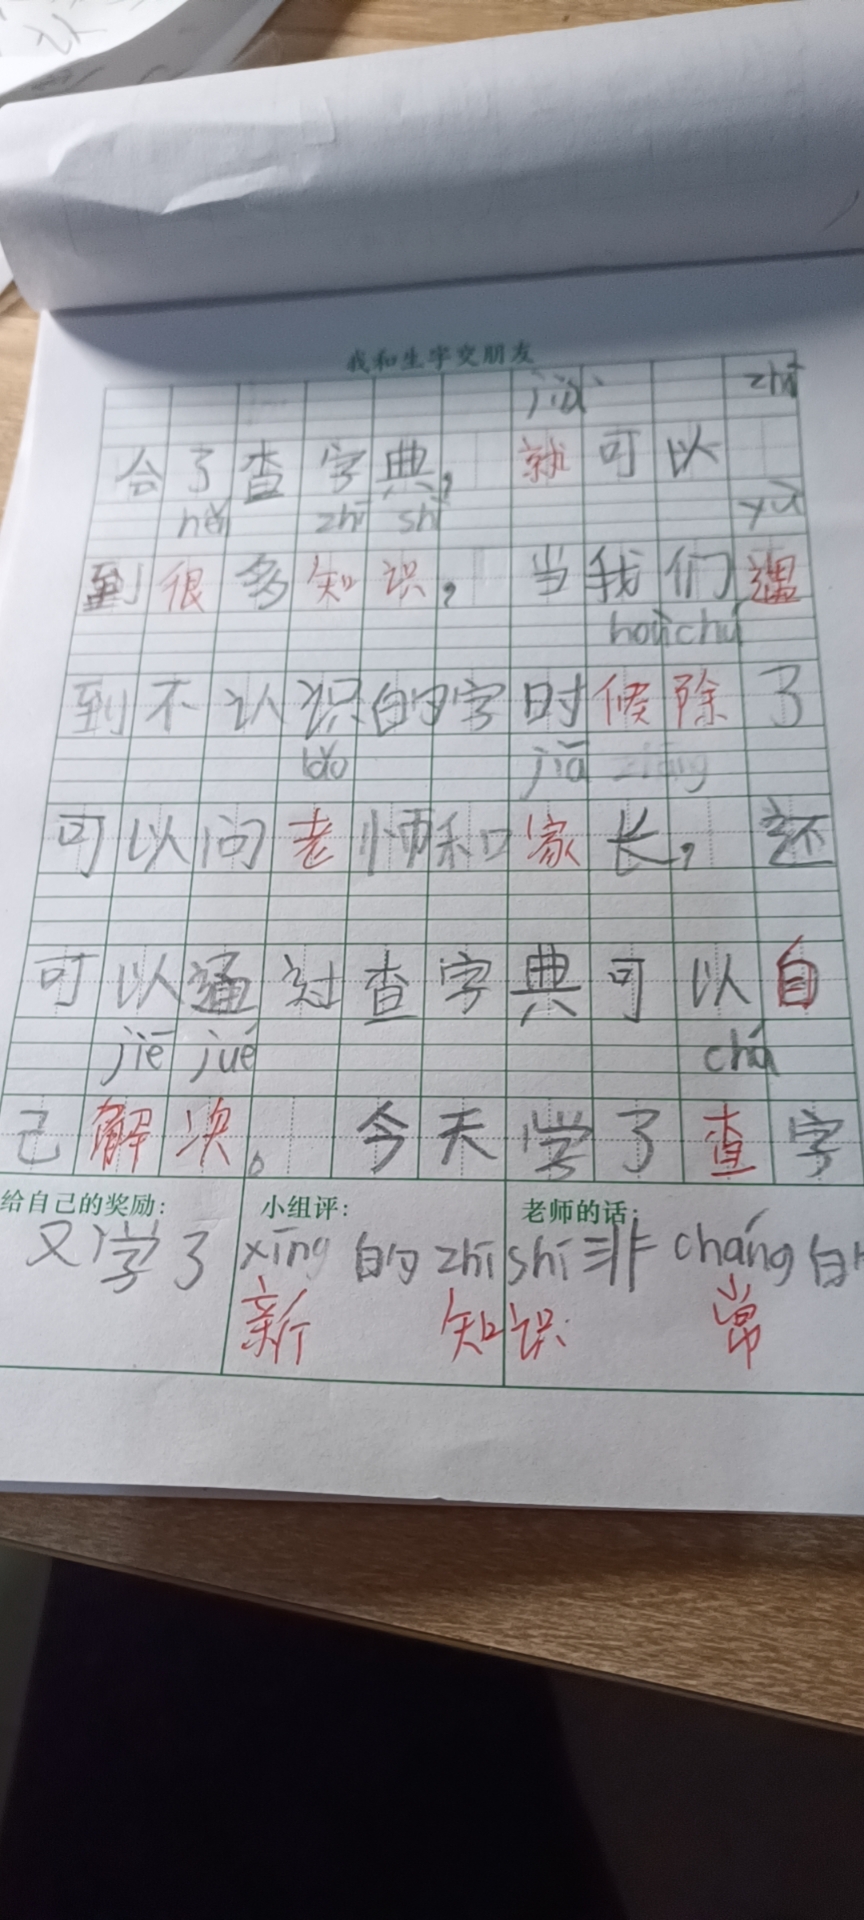 我和生字交朋友
jiù zhī
会了查字典，就可以
hěn zhī shí yù
到很多知识，当我们遇
hòu chú
到不认识的字时候除了
lǎo jiā zhǎng
可以问老师和家长，还
可以通过查字典可以自
jiě jué chá
己解决。今天学了查字
给自己的奖励： 小组评： 老师的话：
又学了xīng的zhī shí非cháng的
新 知识 常